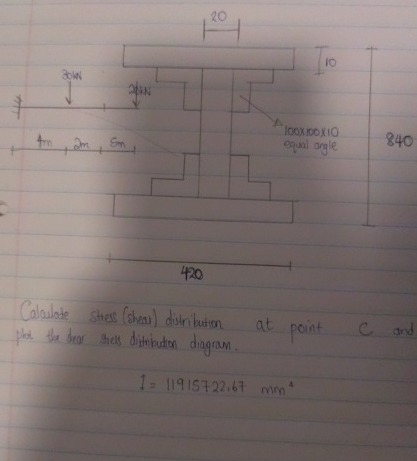 20
10
30kN
20kN
100x100x10
equal angle
840
4m 2m 6m
420
Calculate stress (shear) distribution at point C and
plot the shear stress distribution diagram.
I = 11915722.67 mm⁴